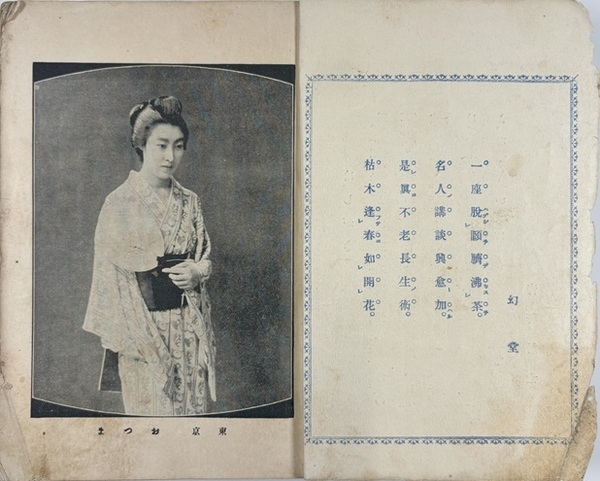 幻堂
一座脱頤臍沸茶。
名人講談興愈加。
是眞不老長生術。
枯木逢春如開花。
東京 おつま